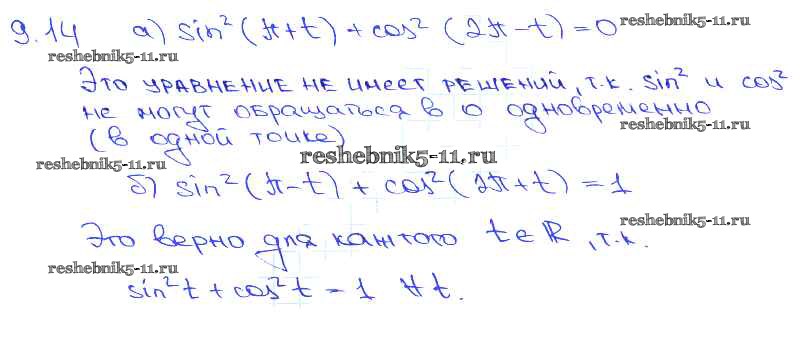 9.14 а) sin²(π+t) + cos²(2π-t) = 0 reshebnik5-11.ru
reshebnik5-11.ru
Это уравнение не имеет решений, т.к. sin² и cos²
не могут обращаться в 0 одновременно
(в одной точке) reshebnik5-11.ru
reshebnik5-11.ru reshebnik5-11.ru
б) sin²(π-t) + cos²(2π+t) = 1
reshebnik5-11.ru
Это верно для каждого t∈R, т.к.
reshebnik5-11.ru
sin²t + cos²t = 1 ∀t.